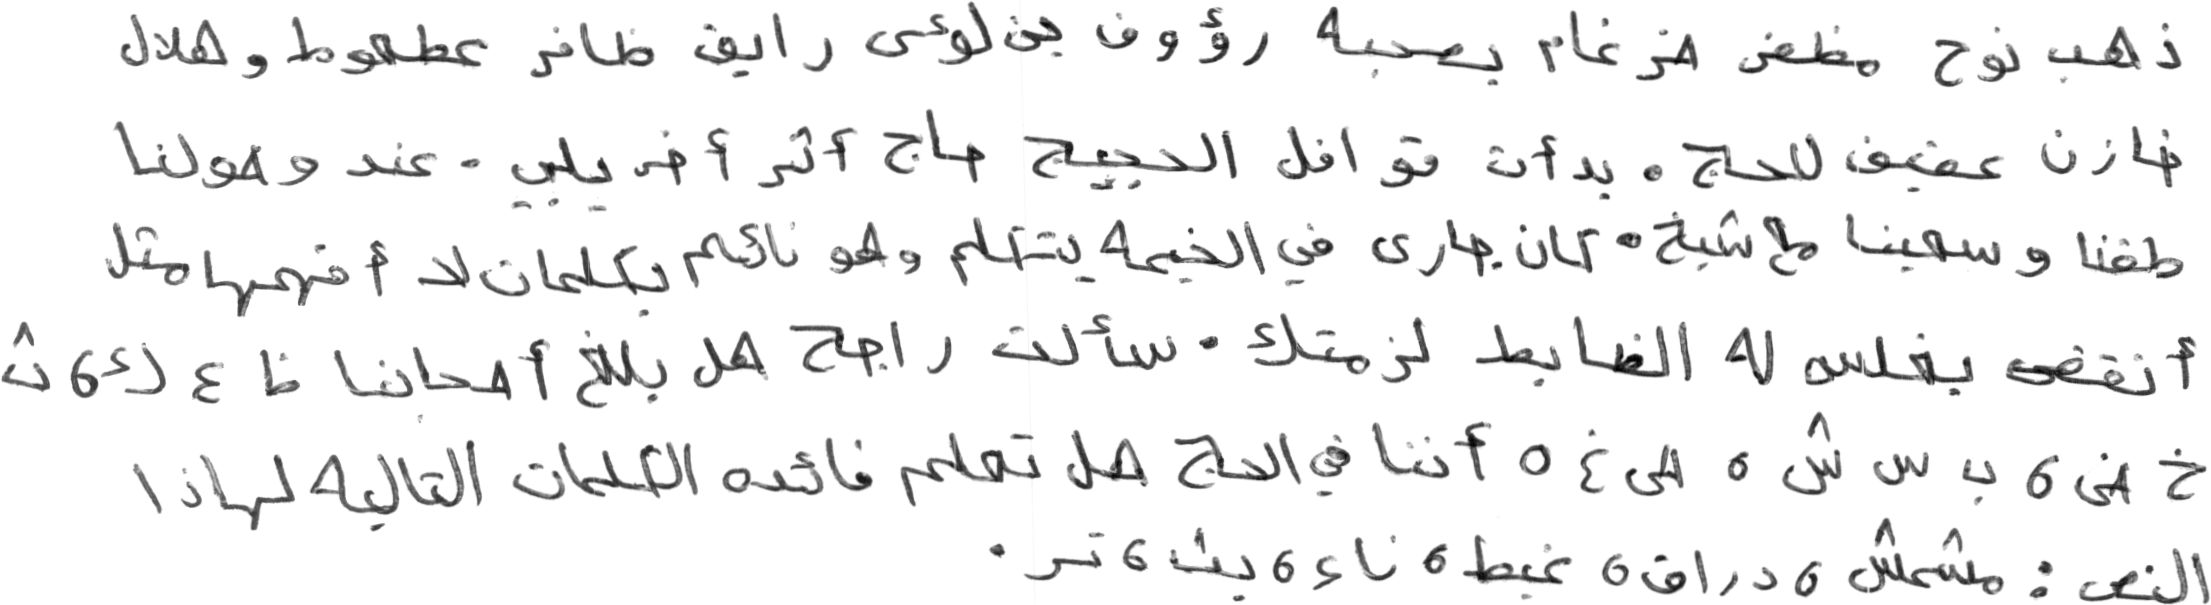 ذهب نوح مظفر ضرغام بصحبه رؤوف بن لوئى رايق ظافر عطعوط وهلال
خازن عفيف للحج . بدأت قوافل الحجيج حاج أثر أخر يلبي . عند وصولنا
طفنا وسعينا مع شيخ . كان جارى في الخيمه يتكلم وهو نائم بكلمات لا أفهمها مثل
أنقض بغلس له الضابط لزمتك . سألت راجح هل بلغ أصحابنا ظ ء ك ، ث
خ ض ، ب س ش ، ص غ ، أننا في الحج هل تعلم فائده الكلمات التاليه لهاذا
النص : مشمش ، دراق ، غبط ، ناء ، بث ، تر .